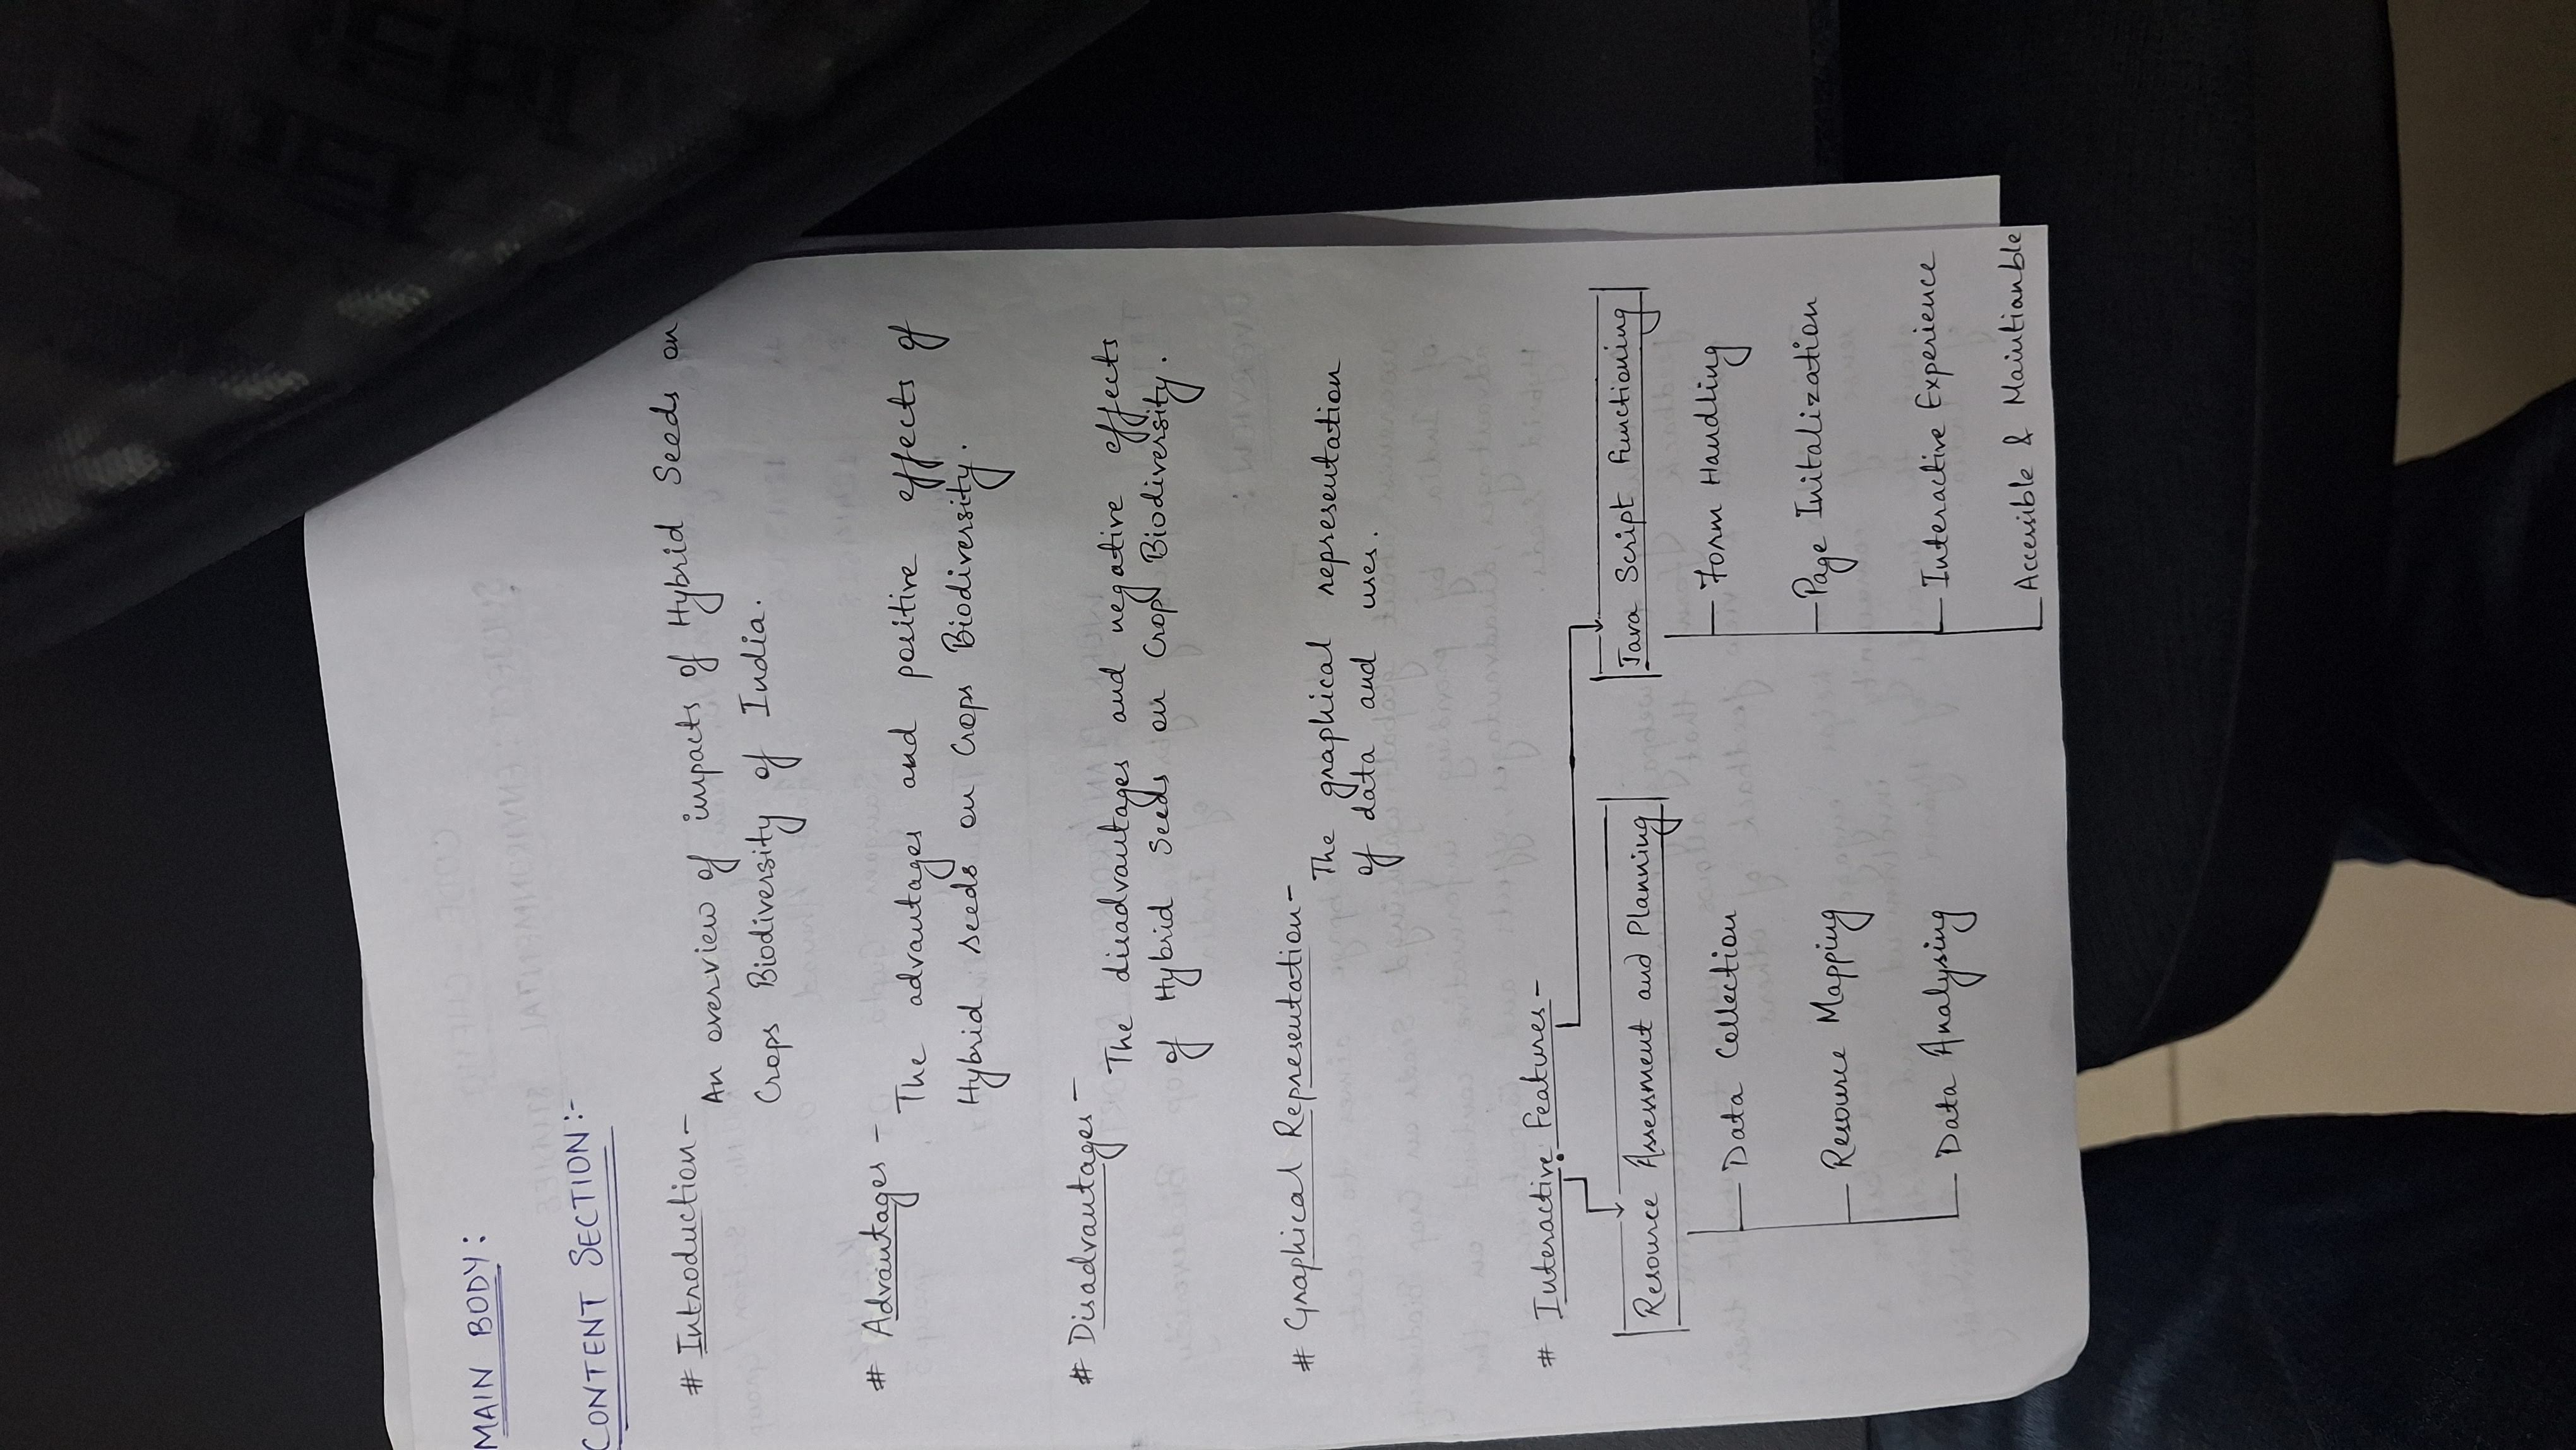 MAIN BODY:
CONTENT SECTION:-
# Introduction-
An overview of impacts of Hybrid Seeds on
Crops Biodiversity of India.
# Advantages -
The advantages and positive effects of
Hybrid seeds on Crops Biodiversity.
# Disadvantages -
The disadvantages and negative effects
of Hybrid Seeds on Crop Biodiversity.
# Graphical Representation-
The graphical representation
of data and uses.
# Interactive Features-
Resource Assessment and Planning
Data Collection
Resource Mapping
Data Analysing
Java Script Functioning
Form Handling
Page Initalization
Interactive Experience
Accessible & Maintianble